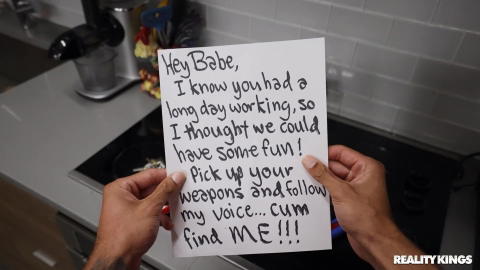 Hey Babe,
I know you had a
long day working, so
I thought we could
have some fun!
Pick up your
weapons and follow
my voice... cum
find ME!!!
REALITY KINGS